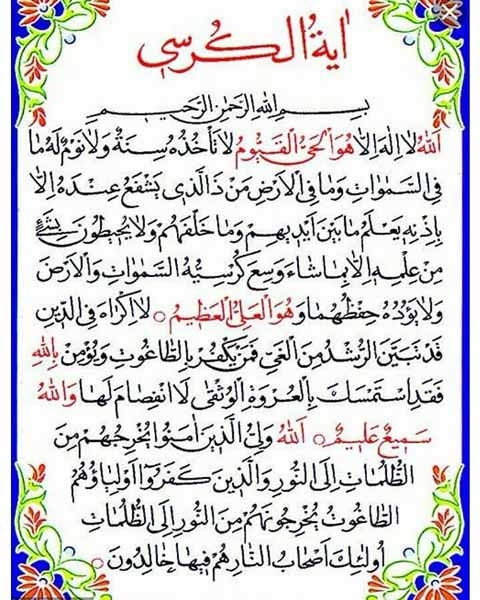 اٰیة الکرسی
بِسْمِ اللهِ الرَّحْمٰنِ الرَّحِیمِ
اَللهُ لا اِلٰهَ اِلاّٰ هُوَ الْحَیُّ الْقَیُّومُ لاٰ تَأْخُذُهُ سِنَةٌ وَلاٰ نَوْمٌ لَهُ مٰا
فِی السَّمٰوٰاتِ وَمٰا فِی الْاَرْضِ مَنْ ذَا الَّذی یَشْفَعُ عِنْدَهُ اِلاّٰ
بِاِذْنِهِ یَعْلَمُ مٰا بَیْنَ اَیْدِیهِمْ وَمٰا خَلْفَهُمْ وَلاٰ یُحیطُونَ بِشَیْءٍ
مِنْ عِلْمِهِ اِلاّٰ بِمٰا شٰاءَ وَسِعَ کُرْسِیُّهُ السَّمٰوٰاتِ وَالْاَرْضَ
وَلاٰ یَؤُدُهُ حِفْظُهُمٰا وَ هُوَ الْعَلِیُّ الْعَظیمُ ○ لاٰ اِکْرٰاهَ فِی الدّینِ
قَدْ تَبَیَّنَ الرُّشْدُ مِنَ الْغَیِّ فَمَنْ یَکْفُرْ بِالطّٰاغُوتِ وَیُؤْمِنْ بِاللهِ
فَقَدِ اسْتَمْسَكَ بِالْعُرْوَةِ الْوُثْقیٰ لَا انْفِصٰامَ لَهٰا وَاللهُ
سَمیعٌ عَلیمٌ ○ اَللهُ وَلِیُّ الَّذینَ اٰمَنُوا یُخْرِجُهُمْ مِنَ
الظُّلُمٰاتِ اِلَی النُّورِ وَالَّذینَ کَفَرُوا اَوْلِیٰاؤُهُمُ
الطّٰاغُوتُ یُخْرِجُونَهُمْ مِنَ النُّورِ اِلَی الظُّلُمٰاتِ
اُولٰئِكَ اَصْحٰابُ النّٰارِ هُمْ فیهٰا خٰالِدُونَ ○